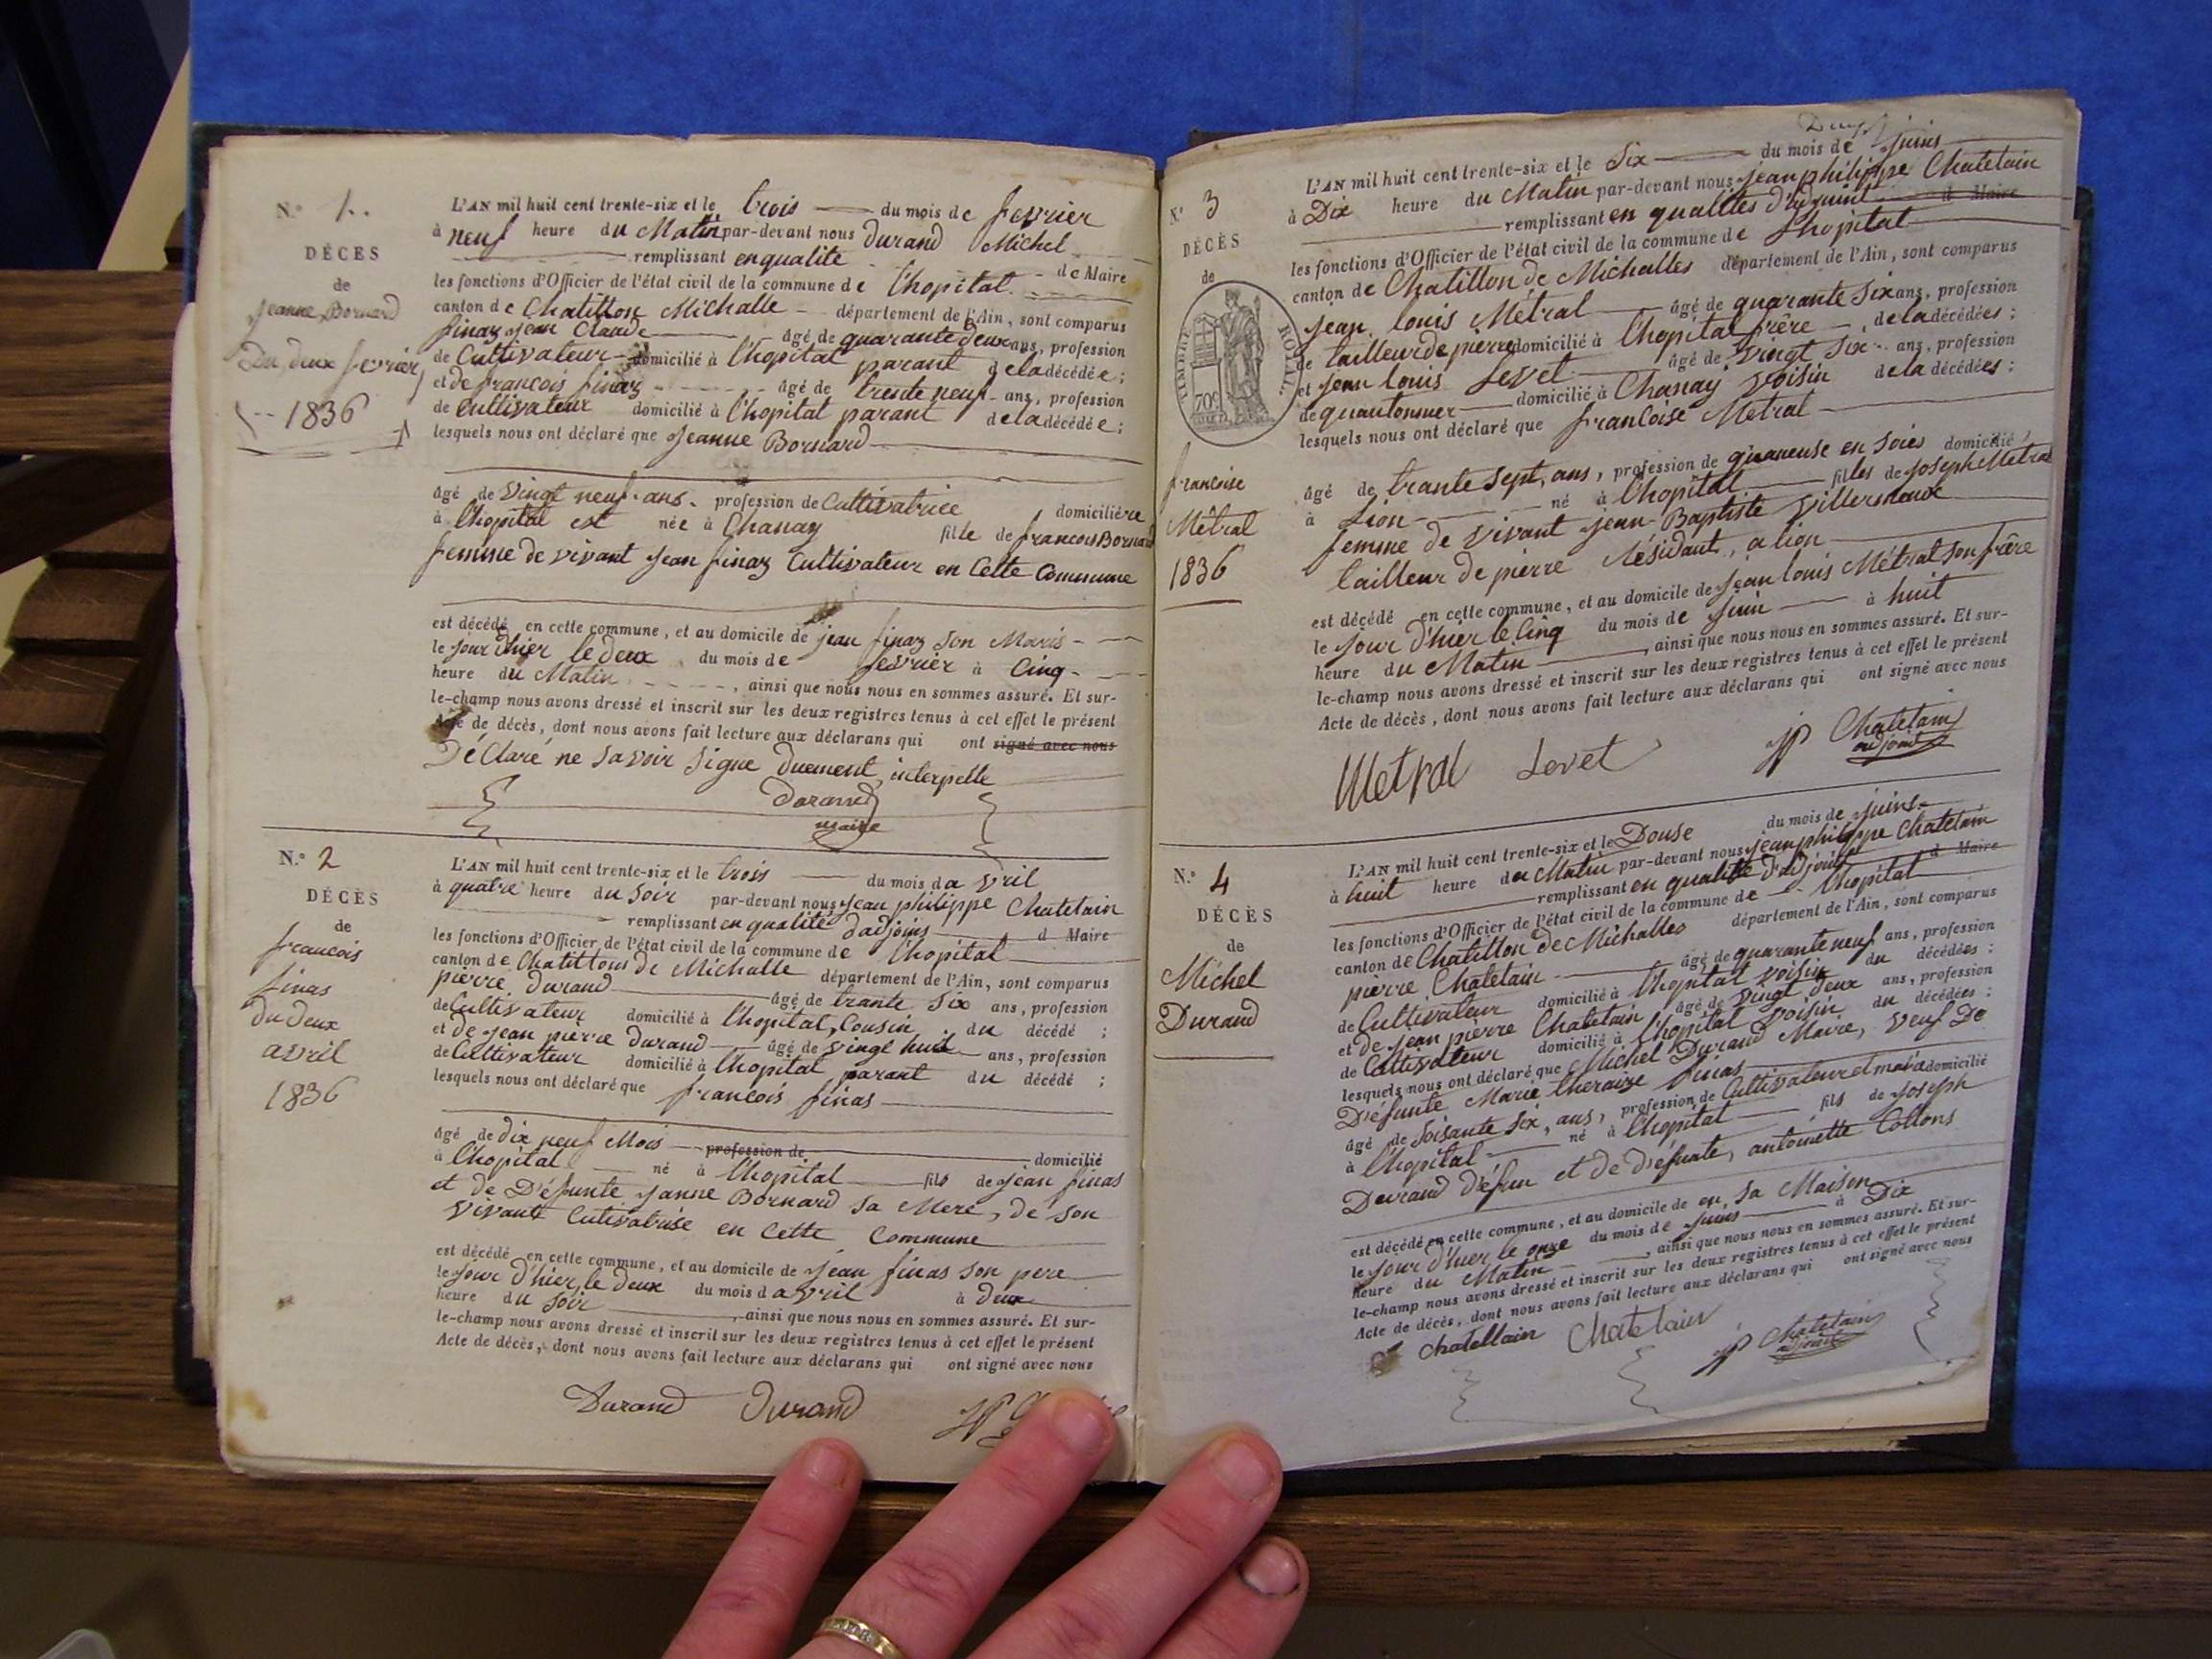 N.° 1.
DÉCÈS
de
Jeanne Bornard
Du deux fevrier
1836
L'AN mil huit cent trente-six et le trois du mois de fevrier
à neuf heure du Matin par-devant nous Durand Michel
remplissant en qualité de Maire
les fonctions d'Officier de l'état civil de la commune de l'hopital
canton de Chatillon Michalle département de l'Ain, sont comparus
finaz jean Claude âgé de quarante deux ans, profession
de Cultivateur domicilié à l'hopital parant de la décédée;
et de francois finaz âgé de trente neuf ans, profession
de Cultivateur domicilié à l'hopital parant de la décédée;
lesquels nous ont déclaré que Jeanne Bornard
âgé de vingt neuf ans. profession de Cultivatrice domicilière
à l'hopital est née à Chanay fille de francois Bornard
femme de vivant Jean finaz Cultivateur en Cette Commune
est décédé en cette commune, et au domicile de jean finaz son Maris
le jour d'hier le deux du mois de fevrier à Cinq
heure du Matin, ainsi que nous nous en sommes assuré. Et sur-
le-champ nous avons dressé et inscrit sur les deux registres tenus à cet effet le présent
Acte de décès, dont nous avons fait lecture aux déclarans qui ont signé avec nous
Déclaré ne savoir signe duement interpelle
Durand
maire
N.° 2
DÉCÈS
de
francois
finas
du deux
avril
1836
L'AN mil huit cent trente-six et le trois du mois d avril
à quatre heure du soir par-devant nous Jean philippe Chatelain
remplissant en qualité dadjoins d Maire
les fonctions d'Officier de l'état civil de la commune de l'hopital
canton de Chatillons de Michalle département de l'Ain, sont comparus
pierre durand âgé de trante six ans, profession
de Cultivateur domicilié à l'hopital, Cousin du décédé;
et de jean pierre durand âgé de vingt huit ans, profession
de Cultivateur domicilié à l'hopital parant du décédé;
lesquels nous ont déclaré que francois finas
âgé de dix neuf Mois profession de domicilié
à l'hopital né à l'hopital fils de jean finas
et de Défunte Janne Bornard sa Mere, de son
vivant Cutivatrise en Cette Commune
est décédé en cette commune, et au domicile de jean finas son pere
le jour d'hier, le deux du mois d avril à deux
heure du soir, ainsi que nous nous en sommes assuré. Et sur-
le-champ nous avons dressé et inscrit sur les deux registres tenus à cet effet le présent
Acte de décès, dont nous avons fait lecture aux déclarans qui ont signé avec nous
Durand Durand
N.° 3
DÉCÈS
de
TIMBRE ROYAL
70c
francoise
Métral
1836
L'AN mil huit cent trente-six et le Six du mois de juins
à Dix heure du Matin par-devant nous jean philippe Chatelain
remplissant en qualités d'adjoint d Maire
les fonctions d'Officier de l'état civil de la commune de Lhopital
canton de Chatillon de Michalles département de l'Ain, sont comparus
jean louis Métral âgé de quarante six ans, profession
de tailleur de pierre domicilié à l'hopital frère de la décédées;
et jean louis Levet âgé de vingt six ans, profession
de quantonnier domicilié à Chanay voisin de la décédées;
lesquels nous ont déclaré que francoise Metral
âgé de trante sept, ans, profession de guaneuse en soies domicilié
à Lion né à l'hopital filles de joseph Metral
femme de vivant jean-Baptiste villermaux
tailleur de pierre résidant, a lion
est décédé en cette commune, et au domicile de jean louis Métral son frère
le jour d'hier le Cinq du mois de juin à huit
heure du Matin, ainsi que nous nous en sommes assuré. Et sur-
le-champ nous avons dressé et inscrit sur les deux registres tenus à cet effet le présent
Acte de décès, dont nous avons fait lecture aux déclarans qui ont signé avec nous
Metral Levet jp Chatelain
adjoint
N.° 4
DÉCÈS
de
Michel
Durand
L'AN mil huit cent trente-six et le Douse du mois de juins
à huit heure du Matin par-devant nous jean philippe Chatelain
remplissant en qualité d'adjoint d Maire
les fonctions d'Officier de l'état civil de la commune de l'hopital
canton de Chatillon de Michalles département de l'Ain, sont comparus
pierre Chatelain âgé de quarante neuf ans, profession
de Cultivateur domicilié à l'hopital voisin du décédées;
et de jean pierre Chatelain âgé de vingt deux ans, profession
de Cultivateur domicilié à l'hopital voisin du décédées;
lesquels nous ont déclaré que Michel Durand Maire, veuf De
Défunte Marie theraize finas
âgé de soisante six, ans, profession de Cultivateur et maire domicilié
à l'hopital né à l'hopital fils de Joseph
Durand défun et de défunte, antoinette Cottons
est décédé en cette commune, et au domicile de en sa Maison
le jour d'hier le onze du mois de juins à Dix
heure du Matin, ainsi que nous nous en sommes assuré. Et sur-
le-champ nous avons dressé et inscrit sur les deux registres tenus à cet effet le présent
Acte de décès, dont nous avons fait lecture aux déclarans qui ont signé avec nous
chatellain Chatelain jp Chatelain
adjoint